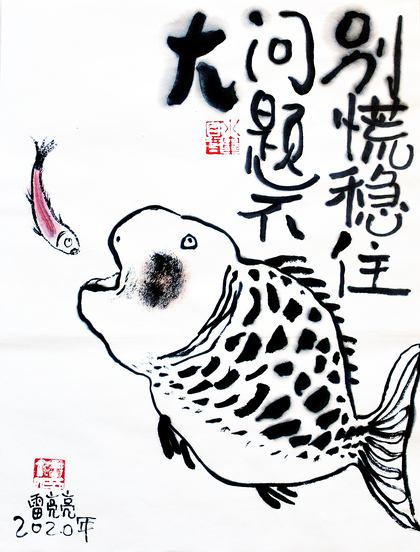 别慌稳住
问题不
大
雷亮亮
2020年